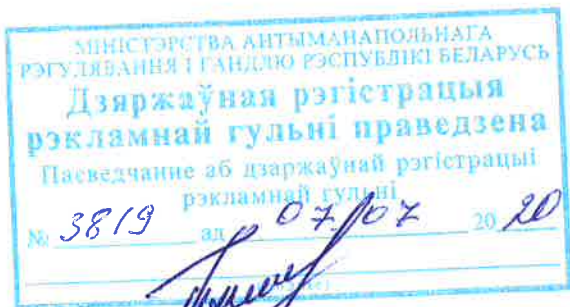 МІНІСТЭРСТВА АНТЫМАНАПОЛЬНАГА
РЭГУЛЯВАННЯ І ГАНДЛЮ РЭСПУБЛІКІ БЕЛАРУСЬ
Дзяржаўная рэгістрацыя
рэкламнай гульні праведзена
Пасведчанне аб дзяржаўнай рэгістрацыі
рэкламнай гульні
№ 3819 ад 07.07 2020